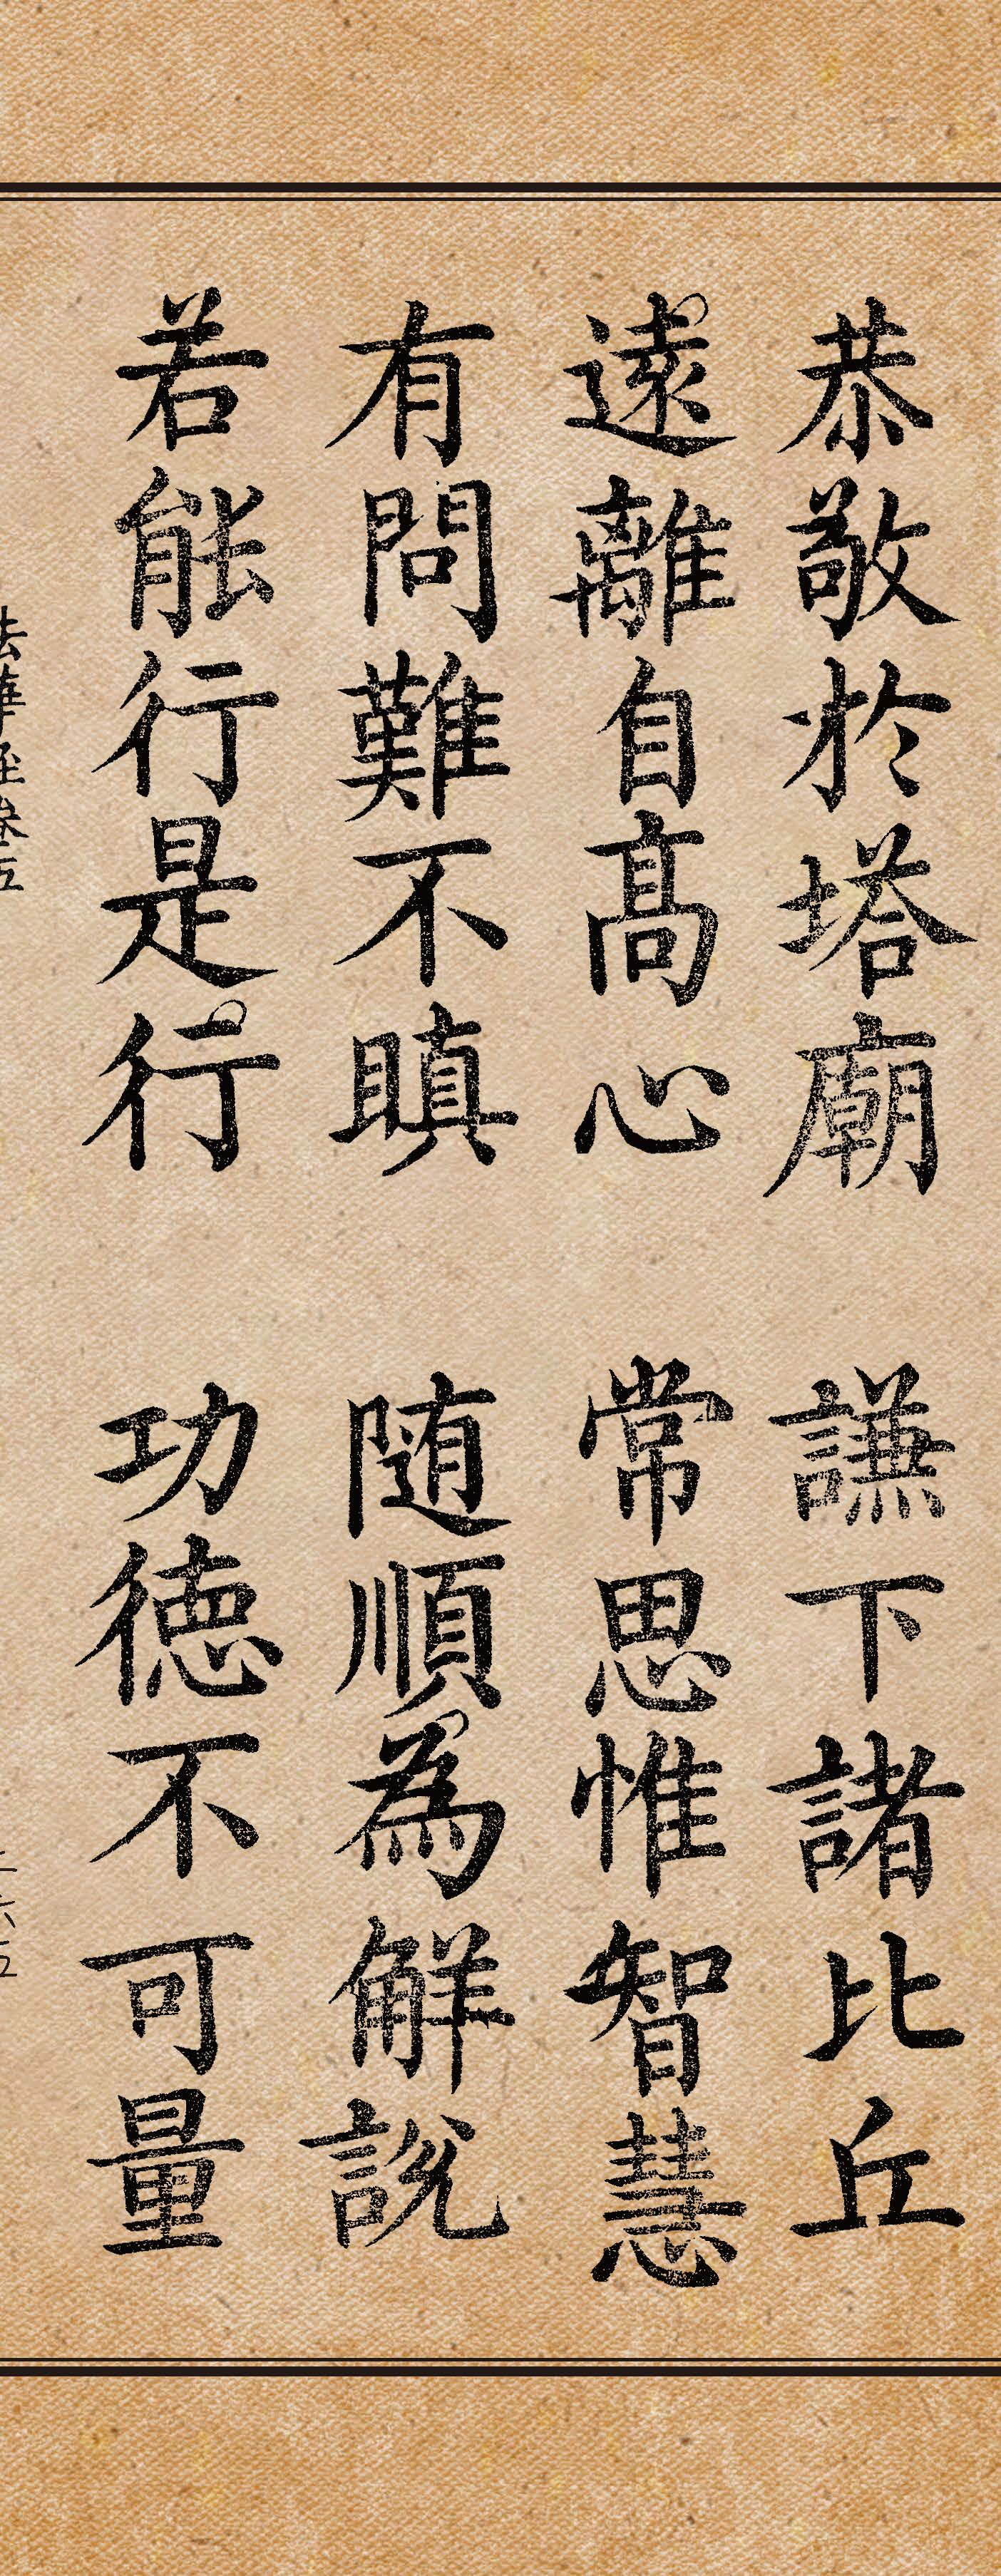 恭敬於塔廟 謙下諸比丘
遠離自髙心 常思惟智慧
有問難不瞋 随順為解説
若能行是行 功徳不可量
法華經巻五 二六五